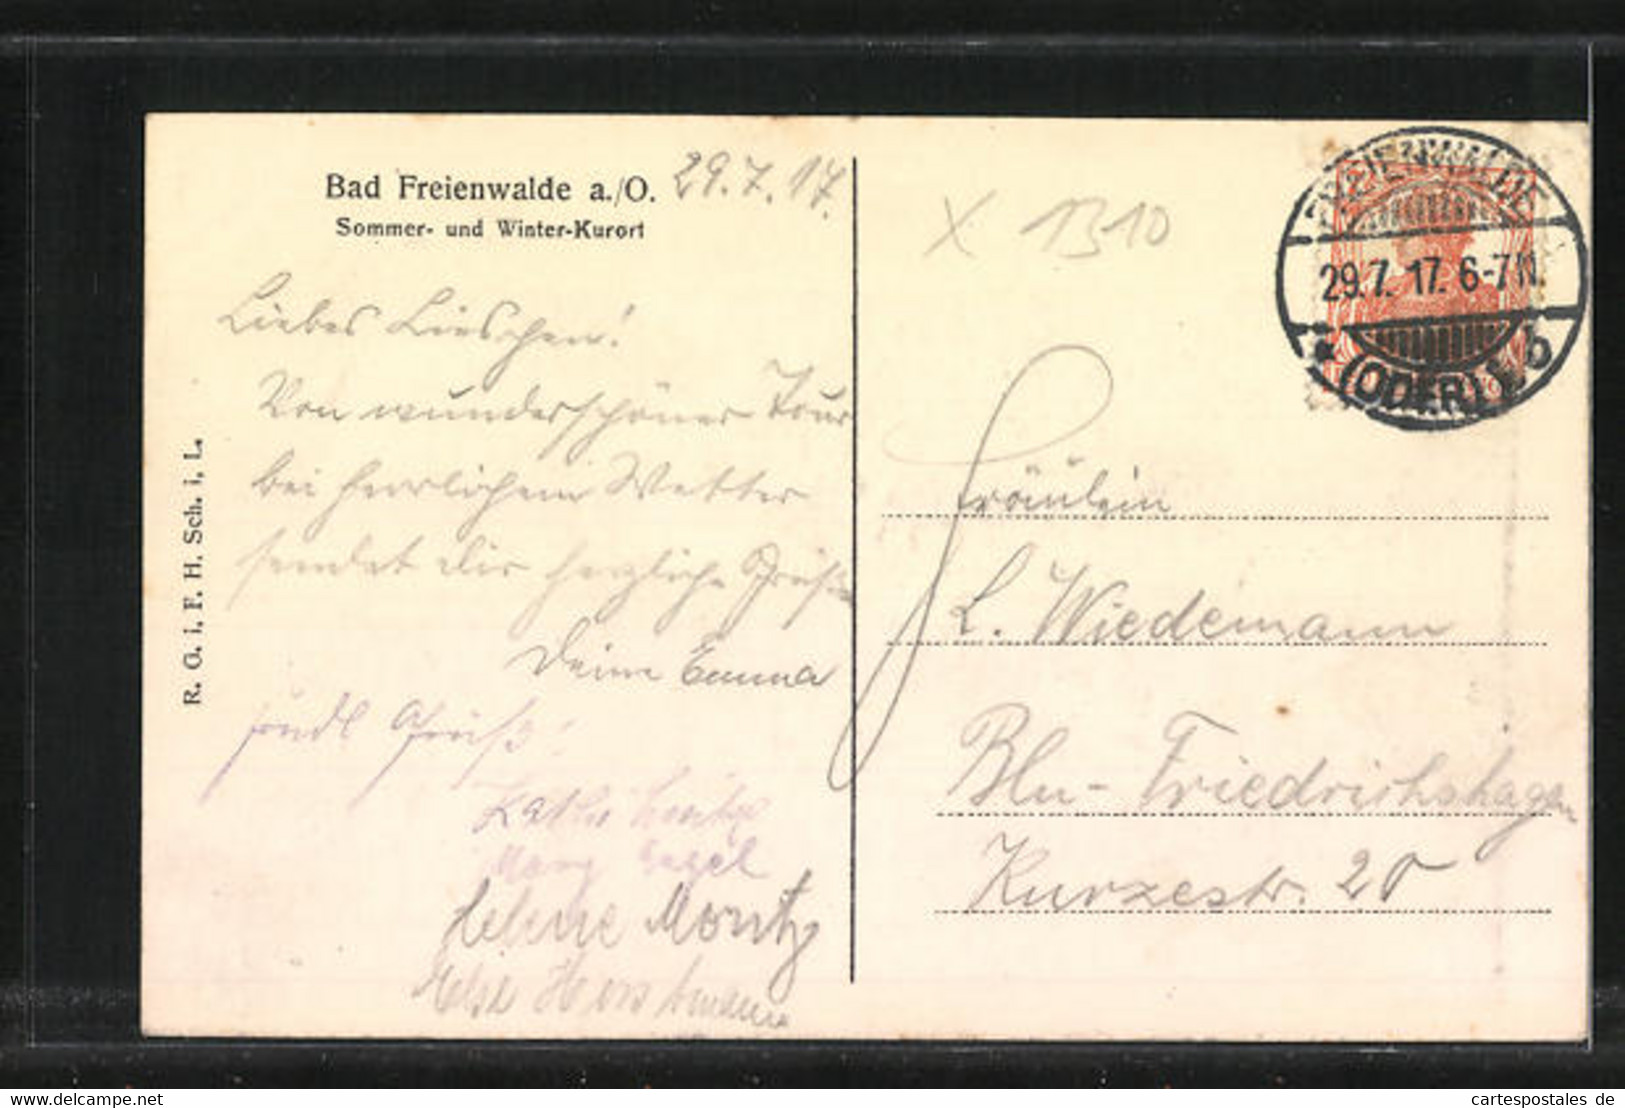 Bad Freienwalde a./O. 29.7.17.
Sommer- und Winter-Kurort
Liebes Lieschen!
Von wunderschöner Tour
bei herrlichem Wetter
sendet Dir herzliche Grüße
Deine Emma
frdl Gruß!
Käthe
Mary
Helene Moritz
Else Horstmann
R. G. i. F. H. Sch. i. L.
X 1310
FREIENWALDE
29.7.17. 6-7N.
* (ODER) b
Fräulein
L. Wiedemann
Bln-Friedrichshagen
Kurzestr. 20
www.delcampe.net
cartespostales de